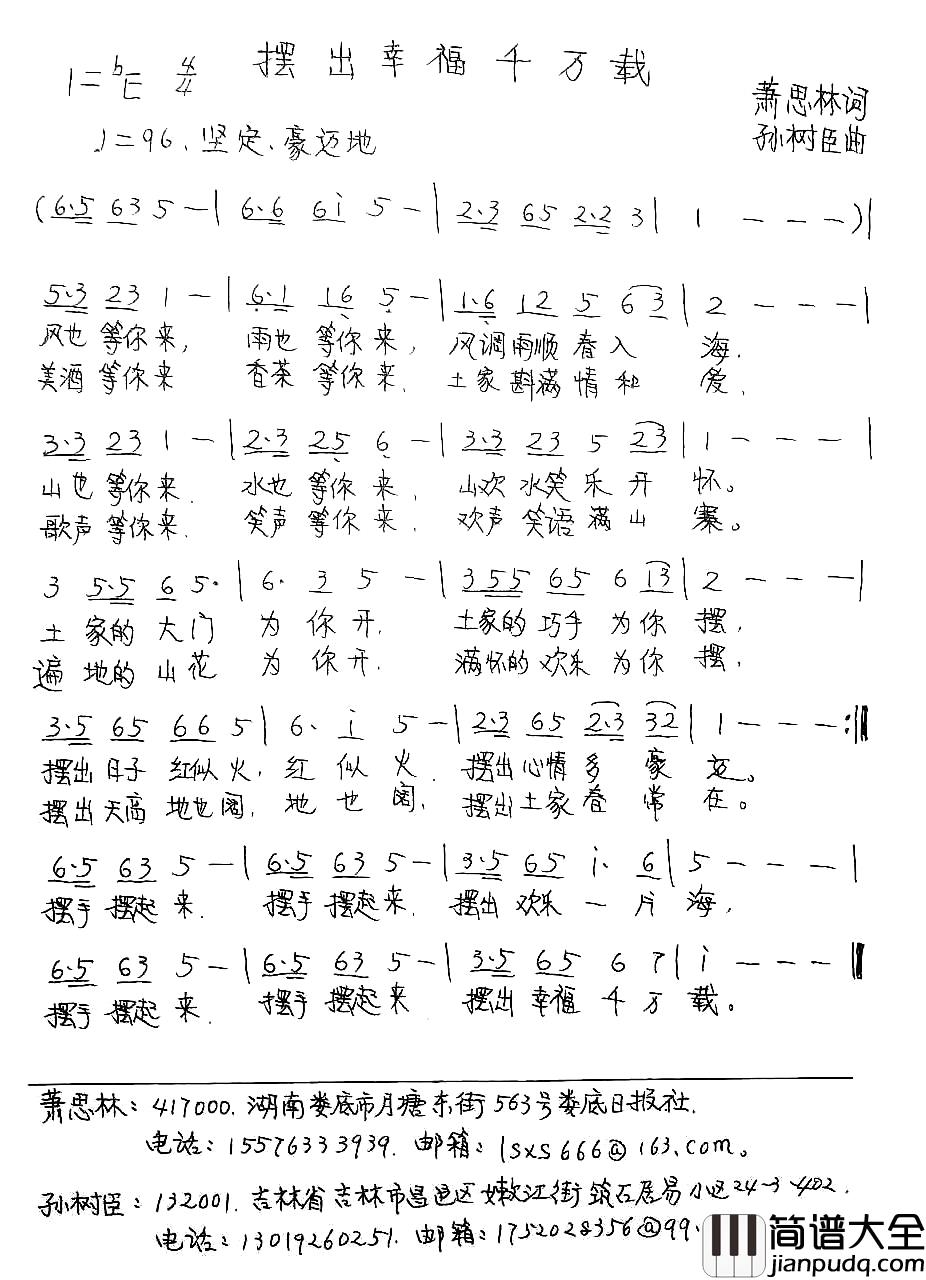 摆出幸福千万载
1=bE 4/4
萧思林词
孙树臣曲
♩=96、坚定、豪迈地
(6·5 63 5 – | 6·6 6i 5 – | 2·3 65 2·2 3 | 1 – – –)|
5·3 23 1 – | 6·1 16 5 – | 1·6 12 5 63 | 2 – – – |
风也等你来, 雨也等你来, 风调雨顺春入海.
美酒等你来 香茶等你来. 土家斟满情和爱.
3·3 23 1 – | 2·3 25 6 – | 3·3 23 5 23 | 1 – – – |
山也等你来. 水也等你来, 山欢水笑乐开怀。
歌声等你来. 笑声等你来. 欢声笑语满山寨。
3 5·5 6 5· | 6· 3 5 – | 3 55 65 6 i3 | 2 – – – |
土家的大门为你开. 土家的巧手为你摆,
遍地的山花为你开. 满怀的欢乐为你摆,
3·5 65 66 5 | 6· i 5 – | 2·3 65 2·3 32 | 1 – – – :‖
摆出日子红似火, 红似火. 摆出心情多豪迈。
摆出天高地也阔, 地也阔, 摆出土家春常在。
6·5 63 5 – | 6·5 63 5 – | 3·5 65 i· 6 | 5 – – – |
摆手摆起来. 摆手摆起来. 摆出欢乐一片海,
6·5 63 5 – | 6·5 63 5 – | 3·5 65 6 7 | i – – – ‖
摆手摆起来. 摆手摆起来 摆出幸福千万载。
萧思林: 417000. 湖南娄底市月塘东街563号娄底日报社.
电话: 15576333939. 邮箱: lsxs666@163.com。
孙树臣: 132001. 吉林省吉林市昌邑区嫩江街筑石居易小区24-3-402.
电话: 13019260251. 邮箱: 1752028356@99.
简谱大全
jianpudq.com